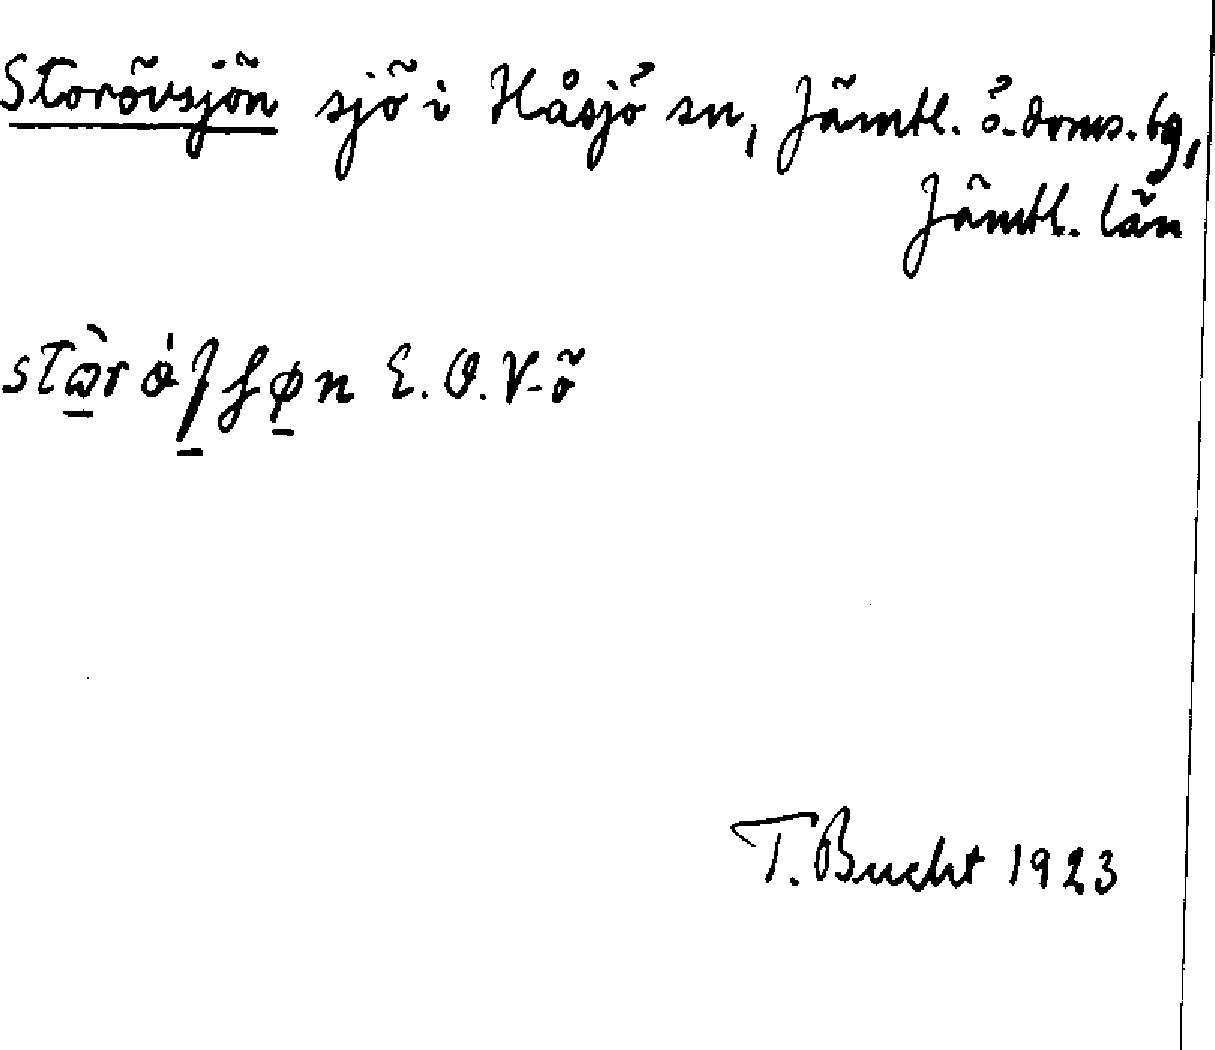 Storövsjön sjö i Håsjö sn, Jämtl. ö. doms. tg,
Jämtl. län
E. O. V-ö
T. Bucht 1923